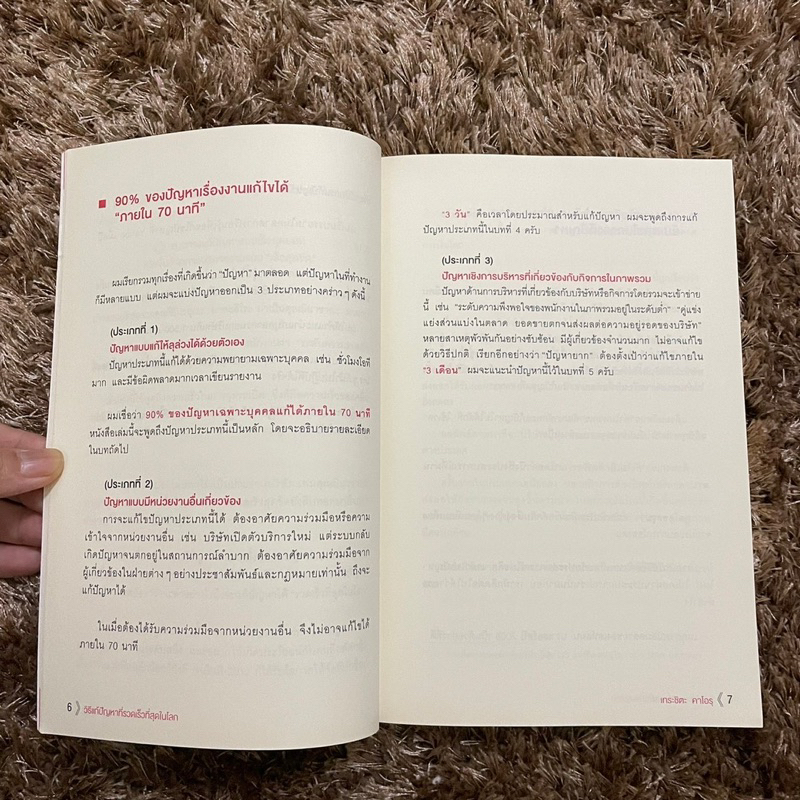 ■ 90% ของปัญหาเรื่องงานแก้ไขได้
"ภายใน 70 นาที"
ผมเรียกรวมทุกเรื่องที่เกิดขึ้นว่า "ปัญหา" มาตลอด แต่ปัญหาในที่ทำงาน
ก็มีหลายแบบ แต่ผมจะแบ่งปัญหาออกเป็น 3 ประเภทอย่างคร่าวๆ ดังนี้
(ประเภทที่ 1)
ปัญหาแบบแก้ให้ลุล่วงได้ด้วยตัวเอง
ปัญหาประเภทนี้แก้ได้ด้วยความพยายามเฉพาะบุคคล เช่น ชั่วโมงโอที
มาก และมีข้อผิดพลาดมากเวลาเขียนรายงาน
ผมเชื่อว่า 90% ของปัญหาเฉพาะบุคคลแก้ได้ภายใน 70 นาที
หนังสือเล่มนี้จะพูดถึงปัญหาประเภทนี้เป็นหลัก โดยจะอธิบายรายละเอียด
ในบทถัดไป
(ประเภทที่ 2)
ปัญหาแบบมีหน่วยงานอื่นเกี่ยวข้อง
การจะแก้ไขปัญหาประเภทนี้ได้ ต้องอาศัยความร่วมมือหรือความ
เข้าใจจากหน่วยงานอื่น เช่น บริษัทเปิดตัวบริการใหม่ แต่ระบบกลับ
เกิดปัญหาจนตกอยู่ในสถานการณ์ลำบาก ต้องอาศัยความร่วมมือจาก
ผู้เกี่ยวข้องในฝ่ายต่างๆ อย่างประชาสัมพันธ์และกฎหมายเท่านั้น ถึงจะ
แก้ปัญหาได้
ในเมื่อต้องได้รับความร่วมมือจากหน่วยงานอื่น จึงไม่อาจแก้ไขได้
ภายใน 70 นาที
6 》 วิธีแก้ปัญหาที่รวดเร็วที่สุดในโลก
"3 วัน" คือเวลาโดยประมาณสำหรับแก้ปัญหา ผมจะพูดถึงการแก้
ปัญหาประเภทนี้ในบทที่ 4 ครับ
(ประเภทที่ 3)
ปัญหาเชิงการบริหารที่เกี่ยวข้องกับกิจการในภาพรวม
ปัญหาด้านการบริหารที่เกี่ยวข้องกับบริษัทหรือกิจการโดยรวมจะเข้าข่าย
นี้ เช่น "ระดับความพึงพอใจของพนักงานในภาพรวมอยู่ในระดับต่ำ" "คู่แข่ง
แย่งส่วนแบ่งในตลาด ยอดขายตกจนส่งผลต่อความอยู่รอดของบริษัท"
หลายสาเหตุพัวพันกันอย่างซับซ้อน มีผู้เกี่ยวข้องจำนวนมาก ไม่อาจแก้ไข
ด้วยวิธีปกติ เรียกอีกอย่างว่า "ปัญหายาก" ต้องตั้งเป้าว่าแก้ไขภายใน
"3 เดือน" ผมจะแนะนำปัญหานี้ไว้ในบทที่ 5 ครับ
เทระชิตะ คาโอรุ 《 7